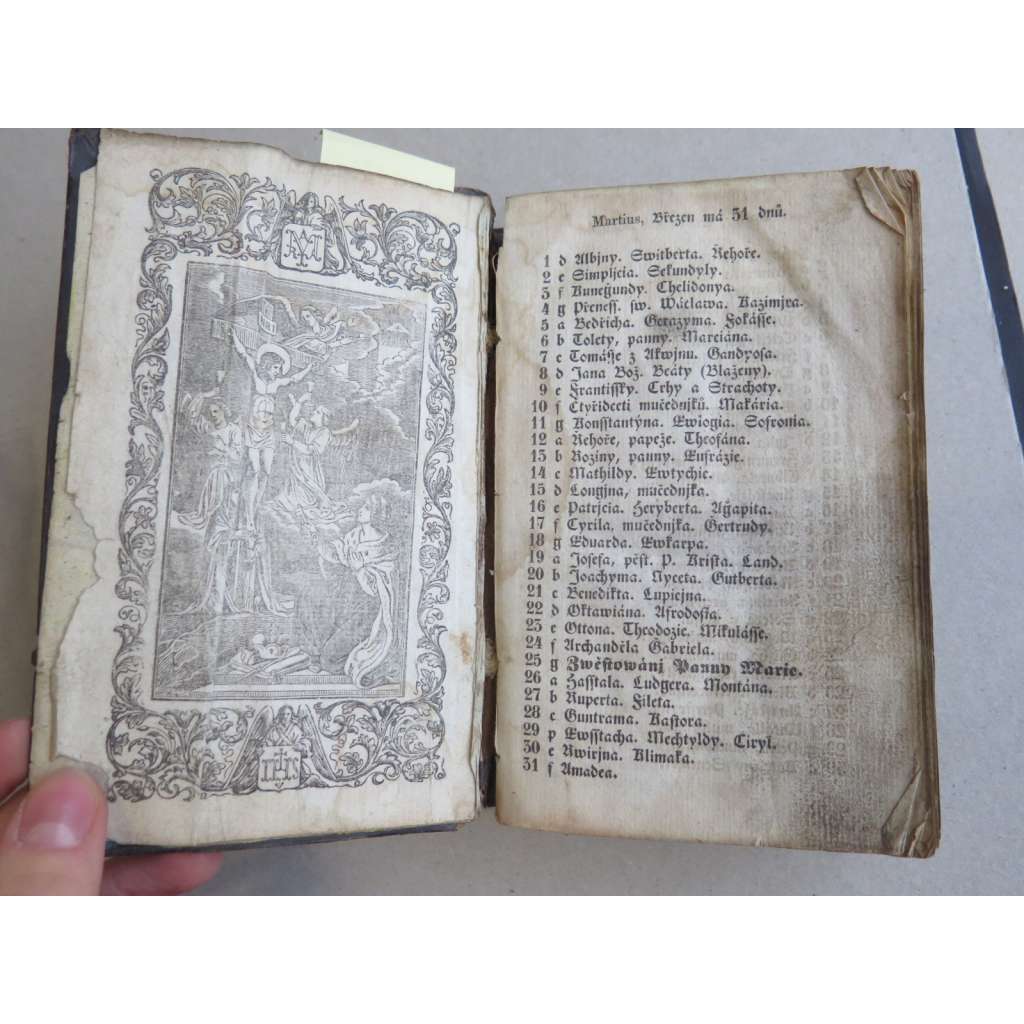 IHS
Martius, Březen má 31 dnů.
1 d Albjny. Switberta. Řehoře.
2 e Simpljcia. Sekundyly.
3 f Kuneǧundy. Chelidonya.
4 g Přeneſſ. ſw. Wáclawa. Kazimjra.
5 a Bedřicha. Gerazyma. Fokáſſe.
6 b Tolety, panny. Marciána.
7 c Tomáſſe z Akwjnu. Gandyoſa.
8 d Jana Bož. Beáty (Blaženy).
9 e Frantiſſky. Crhy a Strachoty.
10 f Čtyřidceti mučednjků. Makária.
11 g Konſſtantýna. Ewlogia. Sofronia.
12 a Řehoře, papeže. Theofána.
13 b Roziny, panny. Eufrázie.
14 c Mathildy. Ewtychie.
15 d Longjna, mučednjka.
16 e Patrjcia. Heryberta. Aǧapita.
17 f Cyrila, mučednjka. Gertrudy.
18 g Eduarda. Ewkarpa.
19 a Joſefa, pěſt. P. Kriſta. Land.
20 b Joachyma. Nyceta. Gutberta.
21 c Benedikta. Lupicjna.
22 d Oktawiána. Afrodoſia.
23 e Ottona. Theodozie. Mikuláſſe.
24 f Archanděla Gabriela.
25 g Zwěſtowánj Panny Marie.
26 a Haſſtala. Ludgera. Montána.
27 b Ruperta. Fileta.
28 c Guntrama. Kaſtora.
29 p Ewſſtacha. Mechtyldy. Ciryl.
30 e Kwirjna. Klimaka.
31 f Amadea.